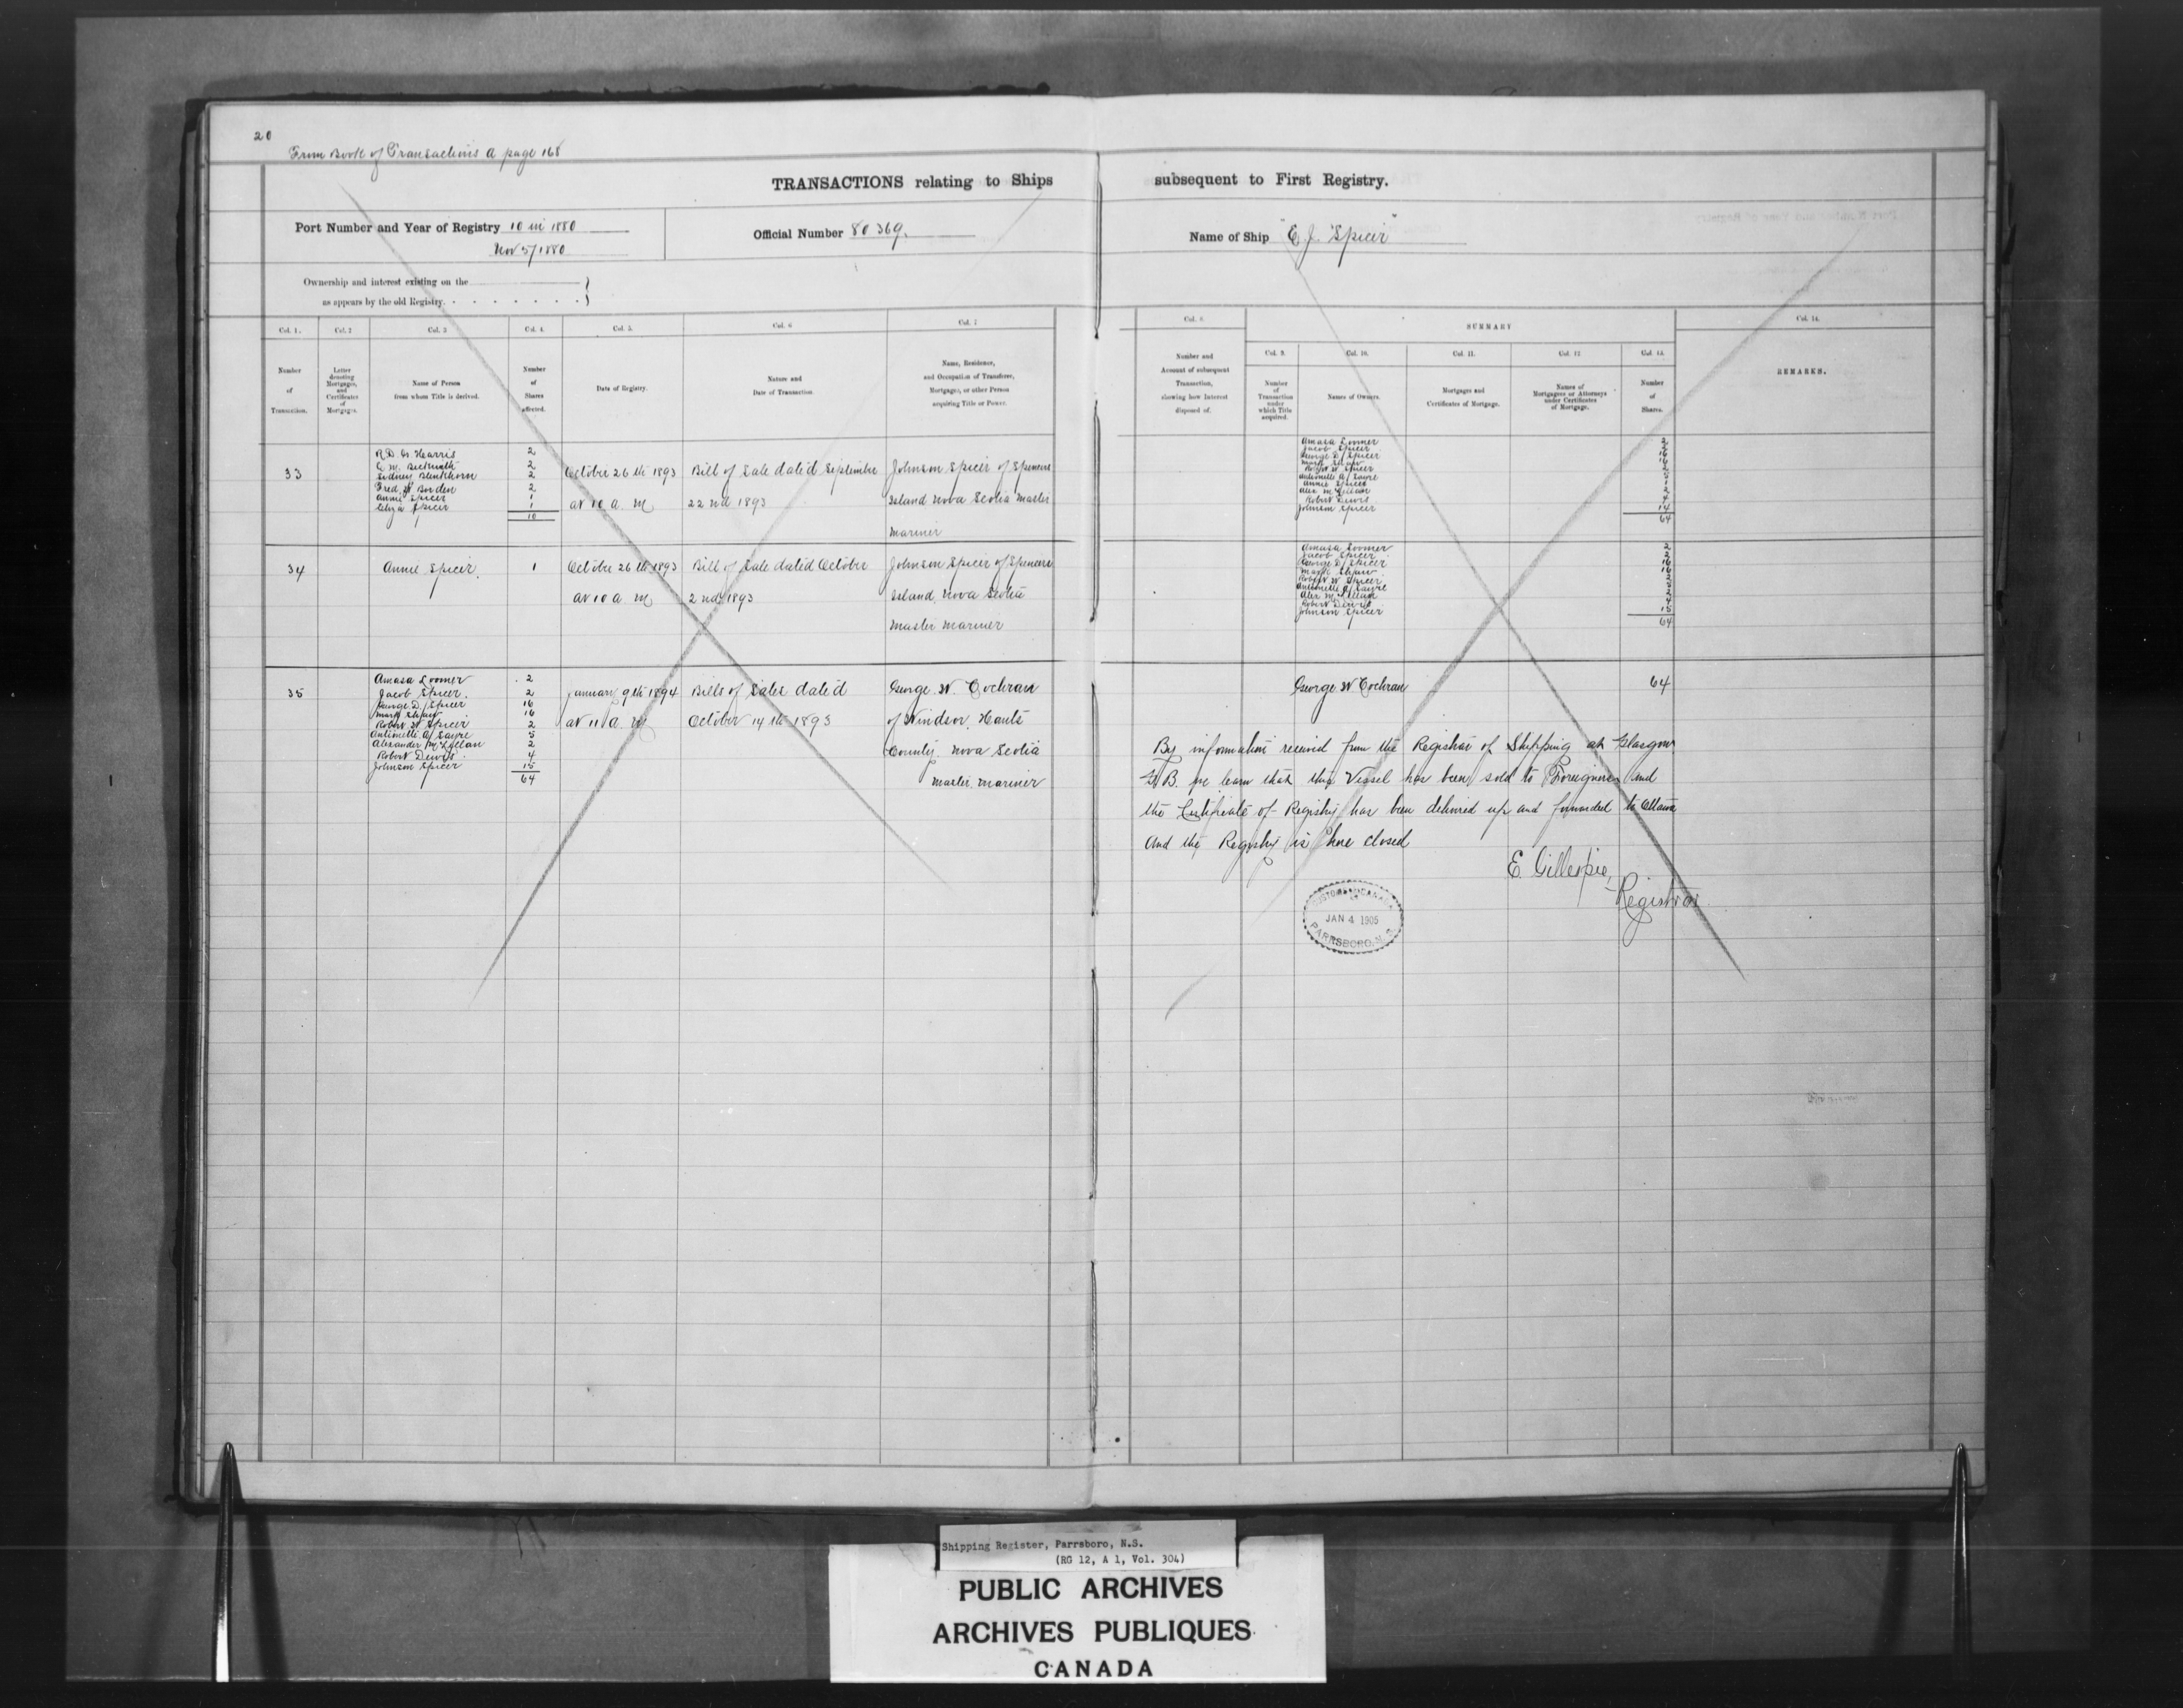 20
From Book of Transactions A page 168
TRANSACTIONS relating to Ships subsequent to First Registry.
Port Number and Year of Registry 10 in 1880
Nov 5/1880
Official Number 80369.
Name of Ship "E. J. Spicer"
Ownership and interest existing on the
as appears by the old Registry.
Col. 1. Col. 2 Col. 3 Col. 4. Col. 5. Col. 6 Col. 7
Number of Transaction.
Letter denoting Mortgages, and Certificates of Mortgages.
Name of Person from whom Title is derived.
Number of Shares affected.
Date of Registry.
Nature and Date of Transaction.
Name, Residence, and Occupation of Transferee, Mortgagee, or other Person acquiring Title or Power.
Col. 8. SUMMARY Col. 14.
Col. 9. Col. 10. Col. 11. Col. 12 Col. 13.
Number and Account of subsequent Transaction, showing how Interest disposed of.
Number of Transaction under which Title acquired.
Names of Owners.
Mortgages and Certificates of Mortgage.
Names of Mortgagees or Attorneys under Certificates of Mortgage.
Number of Shares.
REMARKS.
33
R. D. G Harris 2
2
Sidney Blenkhorn 2
Fred W Borden 2
Annie Spicer 1
Eliza Spicer 1
10
October 26th 1893
at 10 a. m
Bill of Sale dated September
22nd 1893
Johnson Spicer of Spencers
Island Nova Scotia Master
Mariner
Amasa Loomer 2
Jacob Spicer 2
George D. Spicer 16
Mark Shaw 16
Robert W Spicer 2
Antionette A Sayre 5
Annie Spicer 1
Alex McLellan 2
Robert Dewis 4
Johnson Spicer 14
64
34
Annie Spicer. 1
October 26th 1893
at 10 a m
Bill of Sale dated October
2nd 1893
Johnson Spicer of Spencers
Island, Nova Scotia
Master Mariner
Amasa Loomer 2
Jacob Spicer 2
George D. Spicer 16
Mark Shaw 16
Robert W Spicer 2
Antionette A Sayre 5
Alex McLellan 2
Robert Dewis 4
Johnson Spicer 15
64
35
Amasa Loomer 2
Jacob Spicer. 2
George D. Spicer 16
Mark Shaw 16
Robert W Spicer 2
Antionette A. Sayre 5
Alexander McLellan 2
Robert Dewis 4
Johnson Spicer 15
64
January 9th 1894
at 11 a. m
Bills of Sales dated
October 14th 1893
George W. Cochran
of Windsor, Hants
County, Nova Scotia
Master Mariner
George W Cochran 64
By information received from the Registrar of Shipping at Glasgow
G. B. we learn that this Vessel has been sold to Foreigners and
the Certificate of Registry has been delivered up and forwarded to Ottawa
and the Registry is here closed
E. Gillespie,
Registrar
CUSTOMS CANADA
JAN 4 1905
PARRSBORO, N.S.
Shipping Register, Parrsboro, N.S.
(RG 12, A 1, Vol. 304)
PUBLIC ARCHIVES
ARCHIVES PUBLIQUES
CANADA